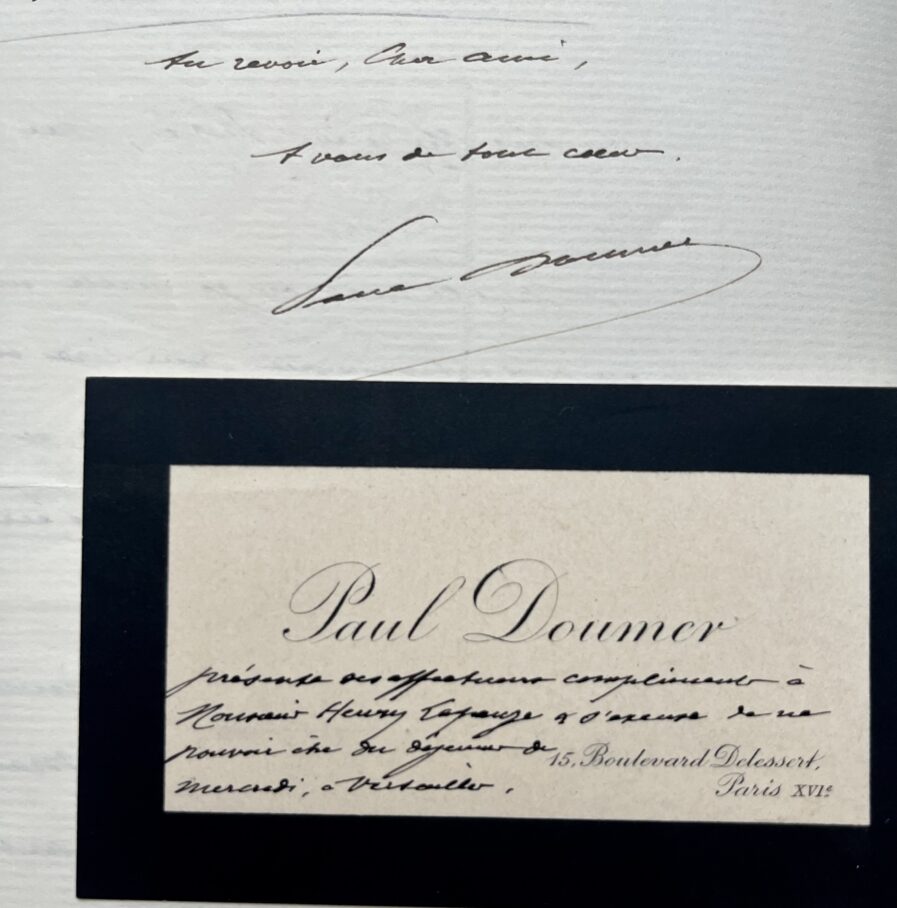 Au revoir, Cher ami,
A vous de tout cœur.
Paul Doumer
Paul Doumer
présente ses affectueux compliments à
Monsieur Henry Lapauze & s'excuse de ne
pouvoir être du déjeuner de
15, Boulevard Delessert,
mercredi, à Versailles.
Paris XVIe